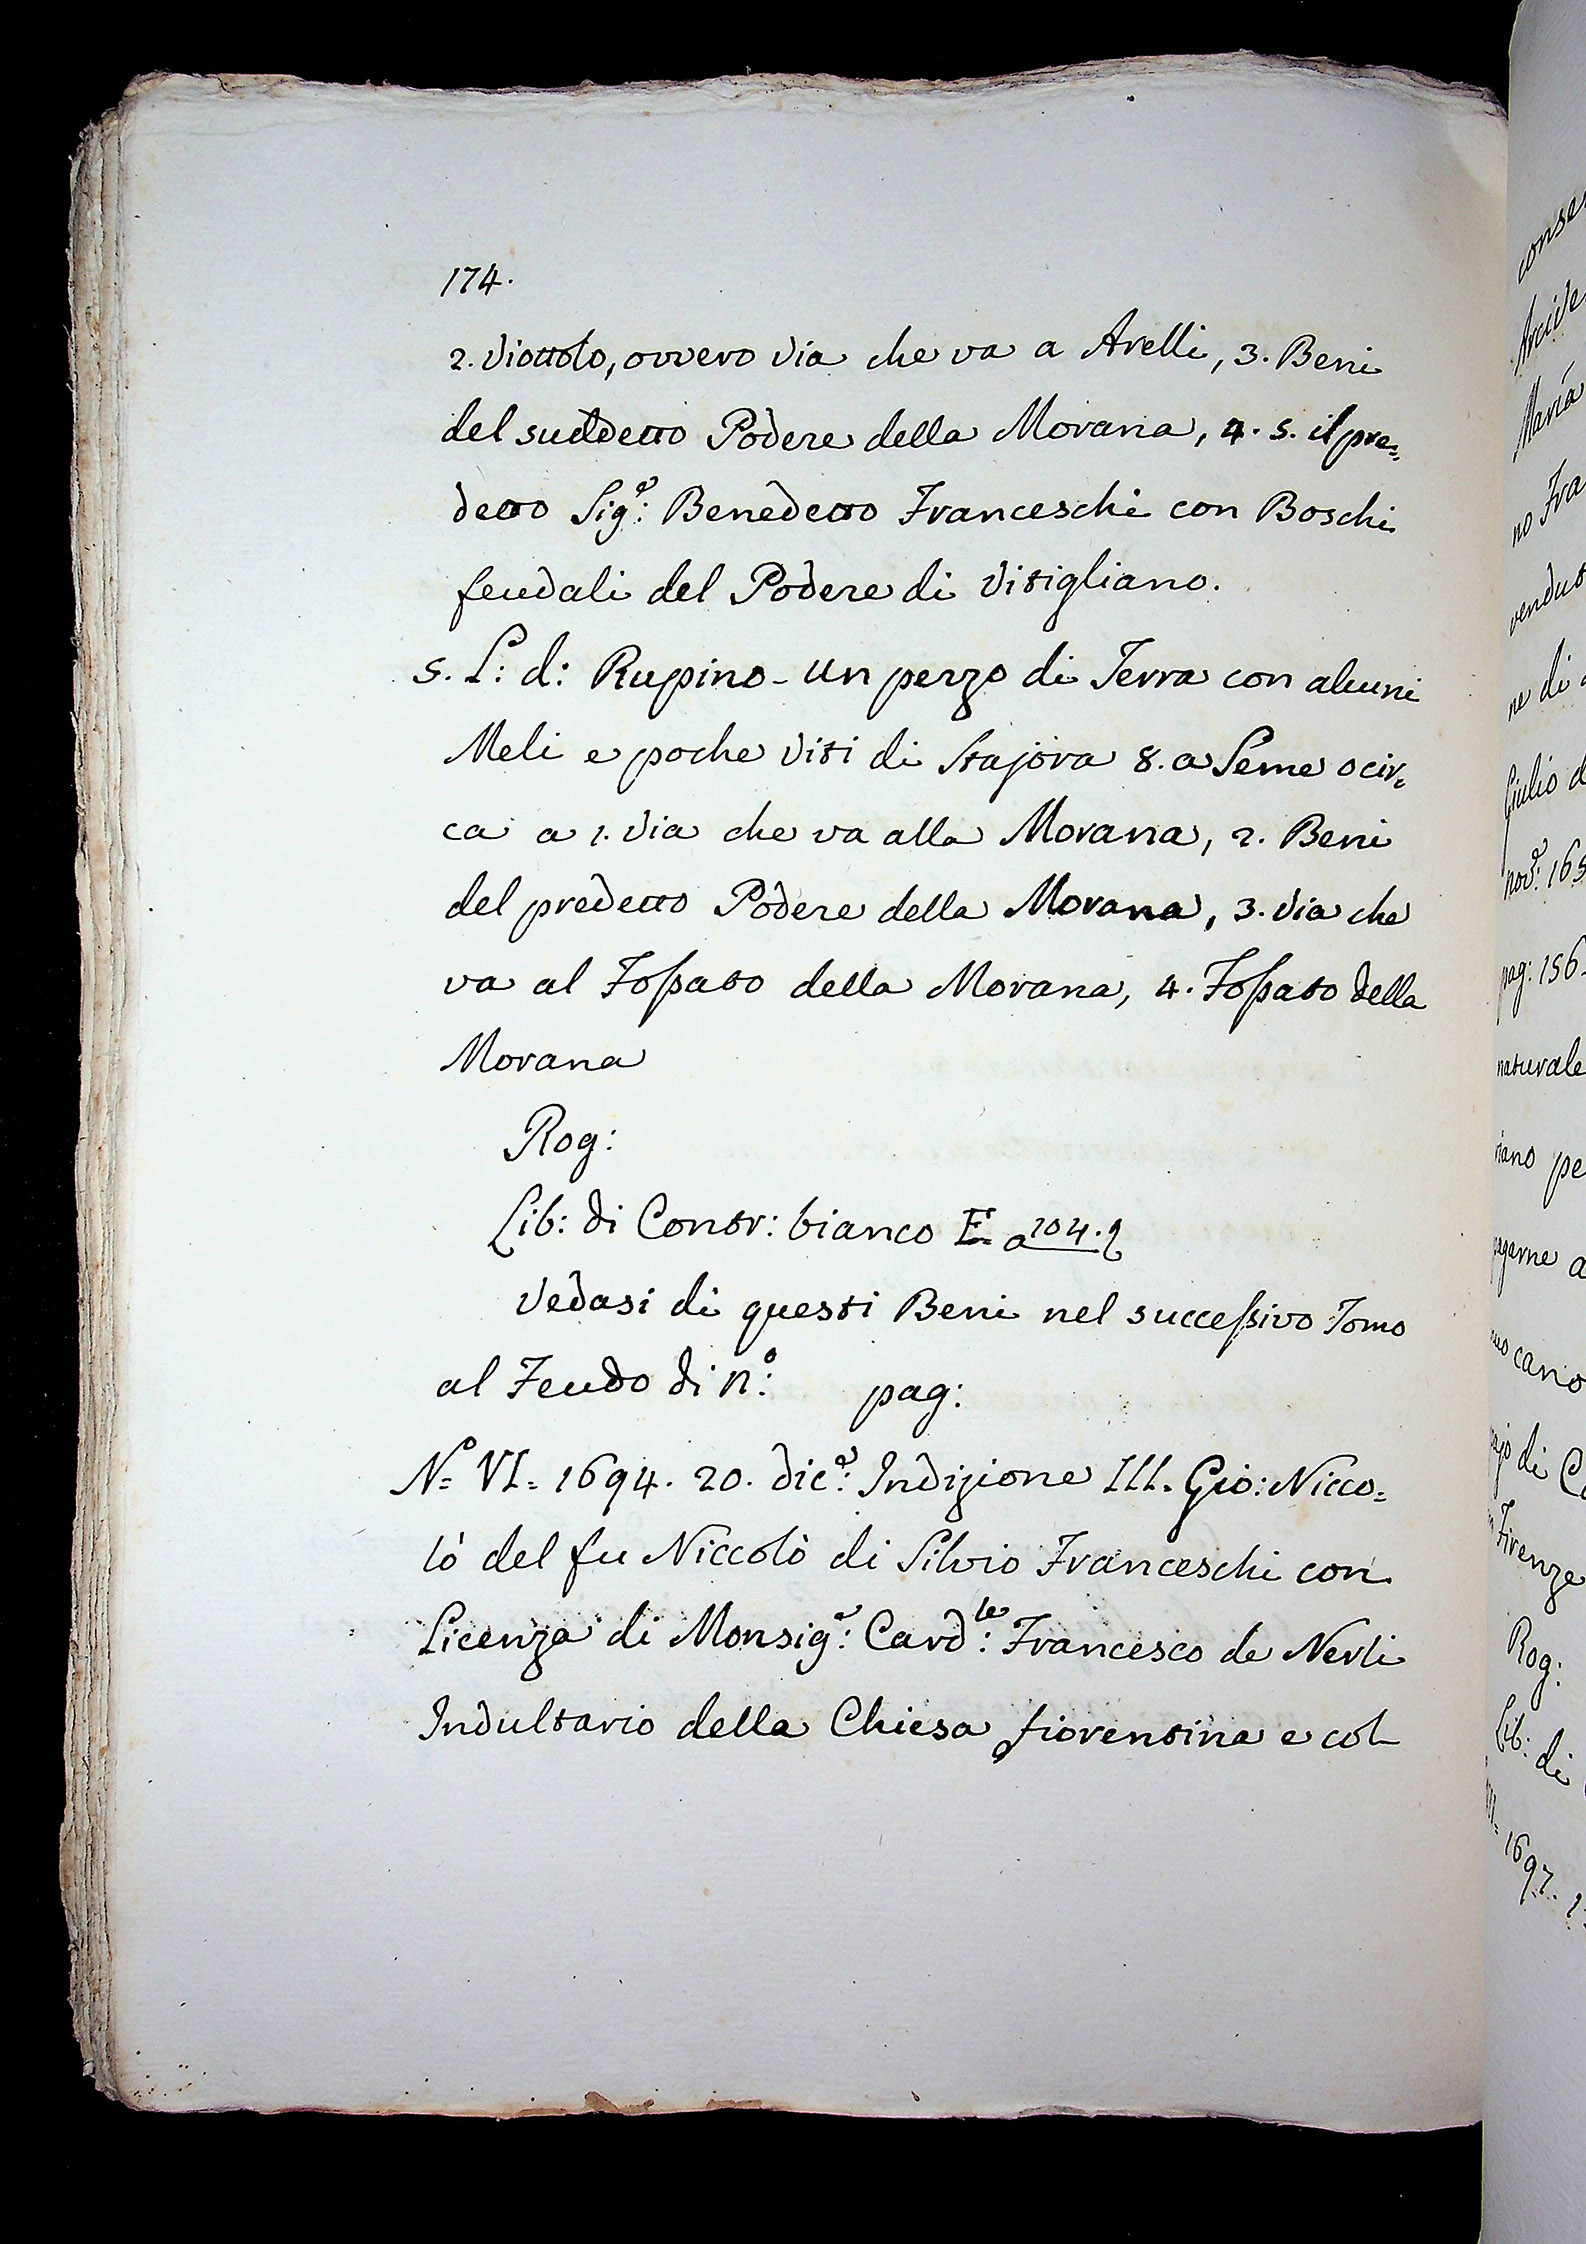 174.
2. Viottolo, ovvero Via che va a Arelli, 3. Beni
del suddetto Podere della Morana, 4. 5. il pre=
detto Sig.e: Benedetto Franceschi con Boschi
feudali del Podere di Vitigliano.
5. L: d: Rupino - Un pezzo di Terra con alcuni
Meli e poche Viti di Stajora 8. a Seme o cir=
ca a 1. Via che va alla Morana, 2. Beni
del predetto Podere della Morana, 3. Via che
va al Fossato della Morana, 4. Fossato della
Morana
Rog:
Lib: di Contr: bianco E a 104.
Vedasi di questi Beni nel successivo Tomo
al Feudo di n.o: pag:
N.o VI. 1694. 20. dic.e: Indizione III. Gio: Nicco=
lò del fu Niccolò di Silvio Franceschi con
Licenza di Monsig.e: Card.le: Francesco de Nerli
Indultario della Chiesa fiorentina e col
conse
Arcive
Maria
no Fra
vendut
ne di
Giulio d
nov.e: 165
pag: 156.
naturale
riano pe
pagarne a
cano
di C
Firenze
Rog:
Lib: di
1697.